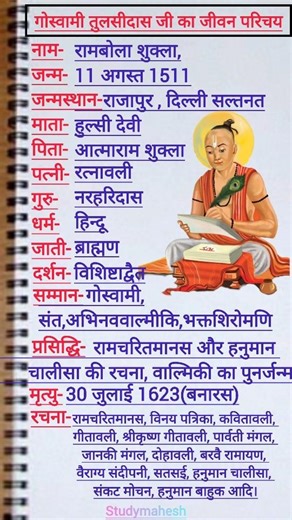 गोस्वामी तुलसीदास जी का जीवन परिचय
नाम- रामबोला शुक्ला,
जन्म- 11 अगस्त 1511
जन्मस्थान-राजापुर , दिल्ली सल्तनत
माता- हुल्सी देवी
पिता- आत्माराम शुक्ला
पत्नी- रत्नावली
गुरु- नरहरिदास
धर्म- हिन्दू
जाती- ब्राह्मण
दर्शन- विशिष्टाद्वैत
सम्मान-गोस्वामी,
संत,अभिनववाल्मीकि,भक्तशिरोमणि
प्रसिद्धि- रामचरितमानस और हनुमान
चालीसा की रचना, वाल्मिकी का पुनर्जन्म
मृत्यु- 30 जुलाई 1623(बनारस)
रचना- रामचरितमानस, विनय पत्रिका, कवितावली,
गीतावली, श्रीकृष्ण गीतावली, पार्वती मंगल,
जानकी मंगल, दोहावली, बरवै रामायण,
वैराग्य संदीपनी, सतसई, हनुमान चालीसा,
संकट मोचन, हनुमान बाहुक आदि।
Studymahesh